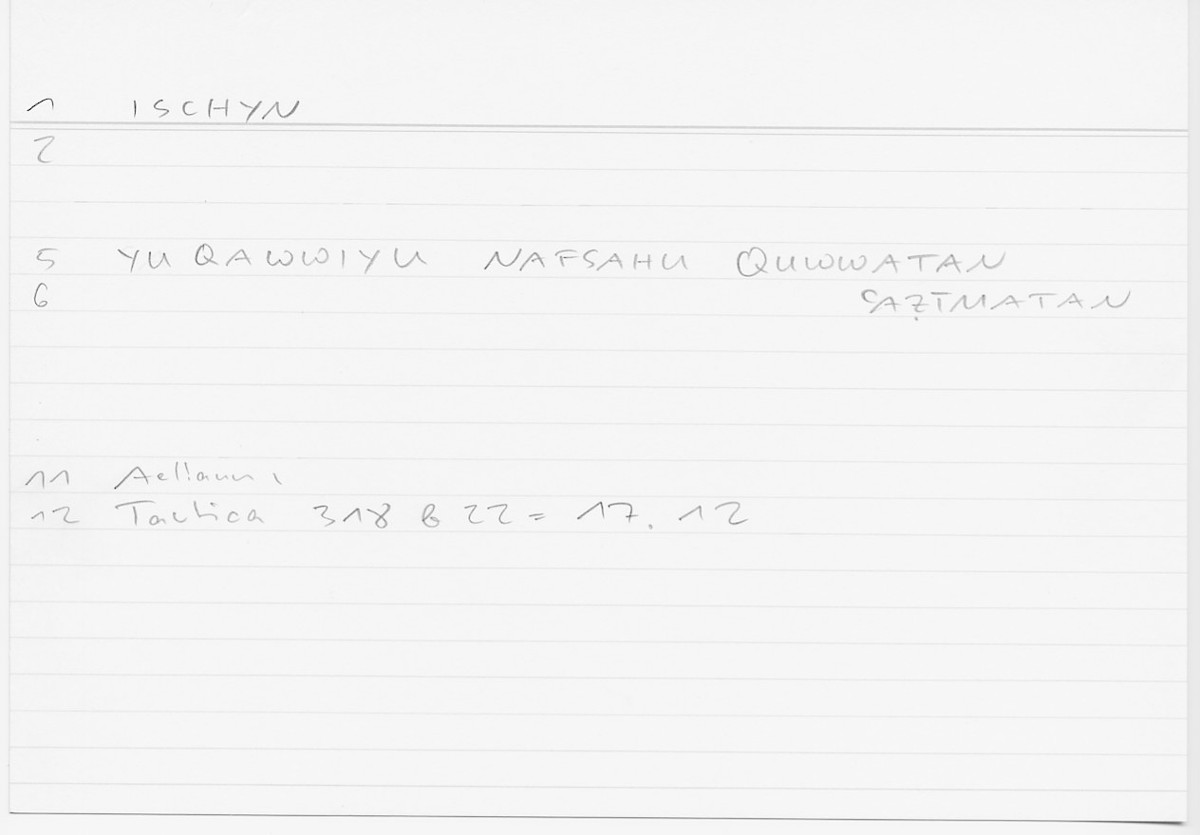 1 ISCHYN
2
5 YUQAWWIYU NAFSAHU QUWWATAN
6 ʿAẒĪMATAN
11 Aeliani
12 Tactica 318 b 22 = 17.12